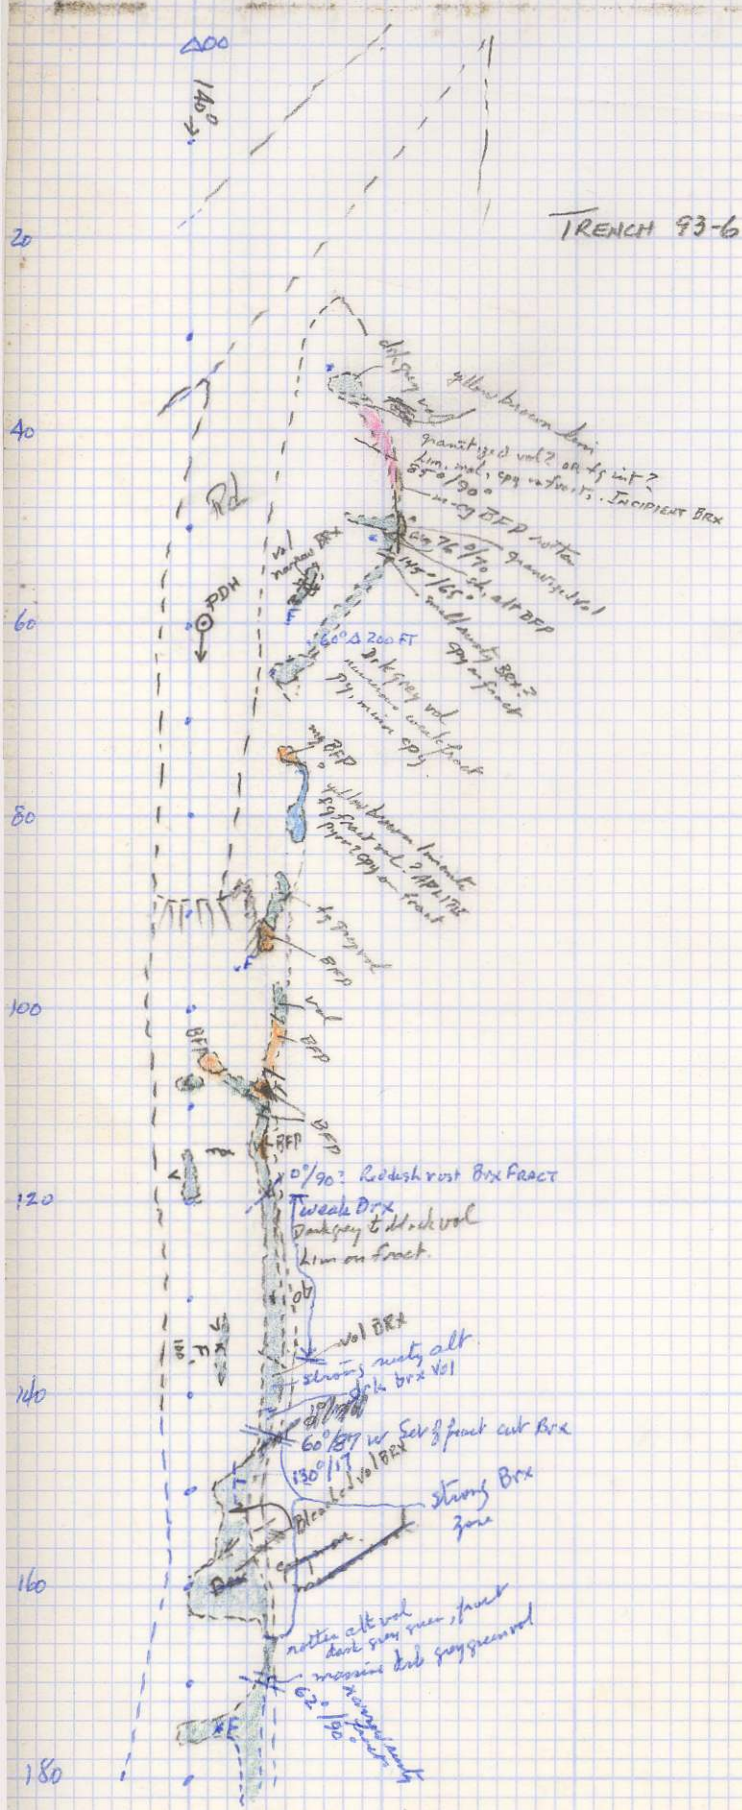 Δ00
140°
20
TRENCH 93-6
drk grey vol
yellow brown lim
40
granitized vol? or fg int?
Lim. mal, cpy on fracts. INCIPIENT BRX
85°/90°
m-cg BFP rotten
Rd
vol
narrow BRX
76°/70
granitized vol
145°/65°
alt BFP
small rusty BRX?
cpy on fract
F
PDH
60
60° Δ 200 FT
Drk grey vol
numerous weak fract
py, minor cpy
mg BFP
yellow brown limonite
fg fract vol? APLITE
py on fract
80
fg grey vol
BFP
F
100
vol
BFP
BFP
BFP
BFP
V
0°/90° Reddish rust Brx FRACT
120
weak Brx
Dark grey to black vol
Lim on fract.
ob
F
vol BRX
strong rusty alt
drk brx vol
140
60°/87 Set of fract cut Brx
130°/17
Bleached vol BRX
strong Brx
zone
160
rotten alt vol
dark grey green, fract
massive drk grey green vol
62°/90°
narrow rusty
fract
F
180